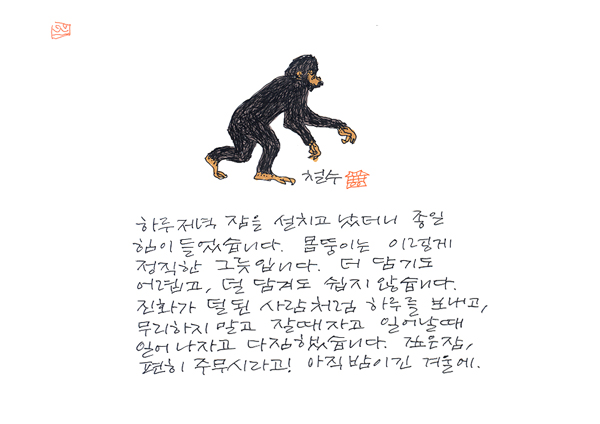 철수
하루저녁 잠을 설치고 났더니 종일
힘이 들었습니다. 몸뚱이는 이렇게
정직한 그릇입니다. 더 담기도
어렵고, 덜 담겨도 쉽지 않습니다.
진화가 덜 된 사람처럼 하루를 보내고,
무리하지 말고 잘때 자고 일어날때
일어나자고 다짐했습니다. 깊은잠,
편히 주무시라고! 아직 밤이 긴 겨울에.